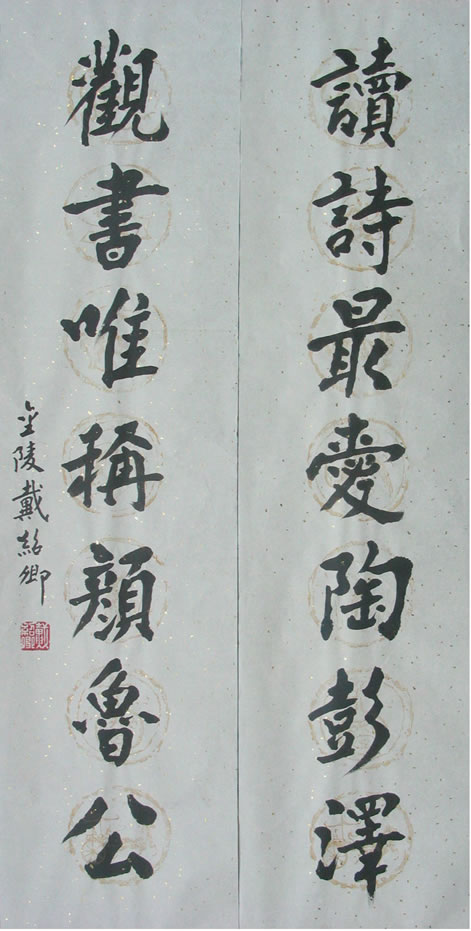 讀詩最愛陶彭澤
觀書唯稱顏魯公
金陵戴紹卿